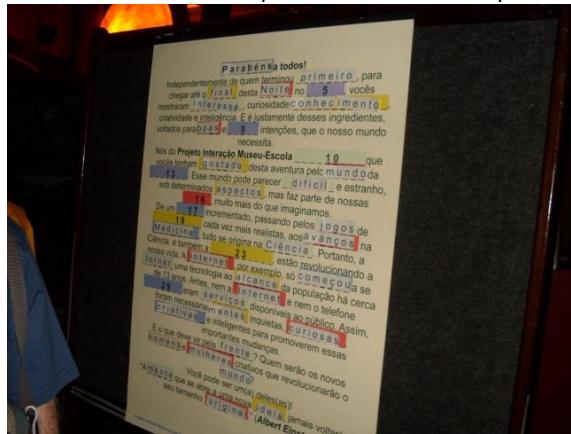 Parabéns a todos!
Independentemente de quem terminou primeiro, para
chegar até o final desta Noite no 5 vocês
mostraram interesse, curiosidade conhecimento,
criatividade e inteligência. E é justamente desses ingredientes,
voltados para boas e 9 intenções, que o nosso mundo
necessita.
Nós do Projeto Interação Museu-Escola 10 que
vocês tenham gostado desta aventura pelo mundo da
13. Esse mundo pode parecer difícil e estranho,
sob determinados aspectos, mas faz parte de nossas
16, muito mais do que imaginamos.
De um 17 incrementado, passando pelos jogos de
19 cada vez mais realistas, aos avanços na
Medicina, tudo se origina na Ciência. Portanto, a
Ciência, e também a 23, estão revolucionando a
nossa vida. A internet, por exemplo, só começou a se
tornar uma tecnologia ao alcance da população há cerca
de 13 anos. Antes, nem a Internet e nem o telefone
29 eram serviços disponíveis ao público. Assim,
foram necessárias mentes inquietas, curiosas,
criativas e inteligentes para promoverem essas
importantes mudanças.
E o que deve vir pela frente? Quem serão os novos
homens e mulheres criativos que revolucionarão o
mundo?
Você pode ser um(a) deles(as)!
"A mente que se abre a uma nova ideia jamais voltará
seu tamanho original"
(Albert Einst